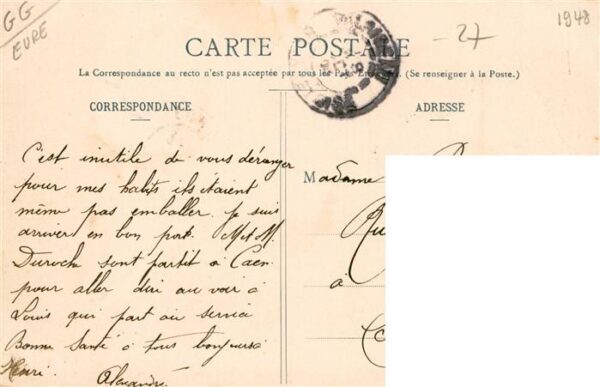 GG
EURE
- 27
1948
CARTE POSTALE
La Correspondance au recto n'est pas acceptée par tous les Pays Etrangers. (Se renseigner à la Poste.)
CORRESPONDANCE
ADRESSE
C'est inutile de vous déranger
pour mes habits ils étaient
même pas emballer. Je suis
arriver en bon port. M et M.
Duroche sont partit à Caen
pour aller dire au voir à
Louis qui part au service
Bonne Santé à tous bonjours
Henri. Alexandre
Madame
Ru
à